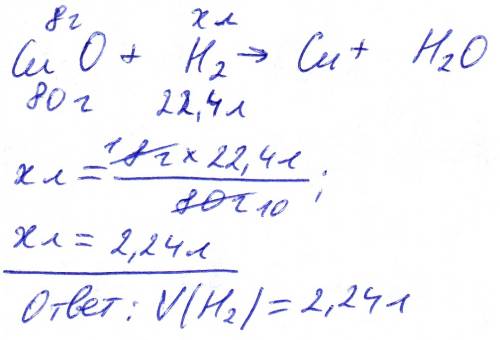 8г х л
CuO + H₂ → Cu + H₂O
80г 22,4л
х л = 1 8г × 22,4л / 80г 10 ;
х л = 2,24л
Ответ: V(H₂) = 2,24л